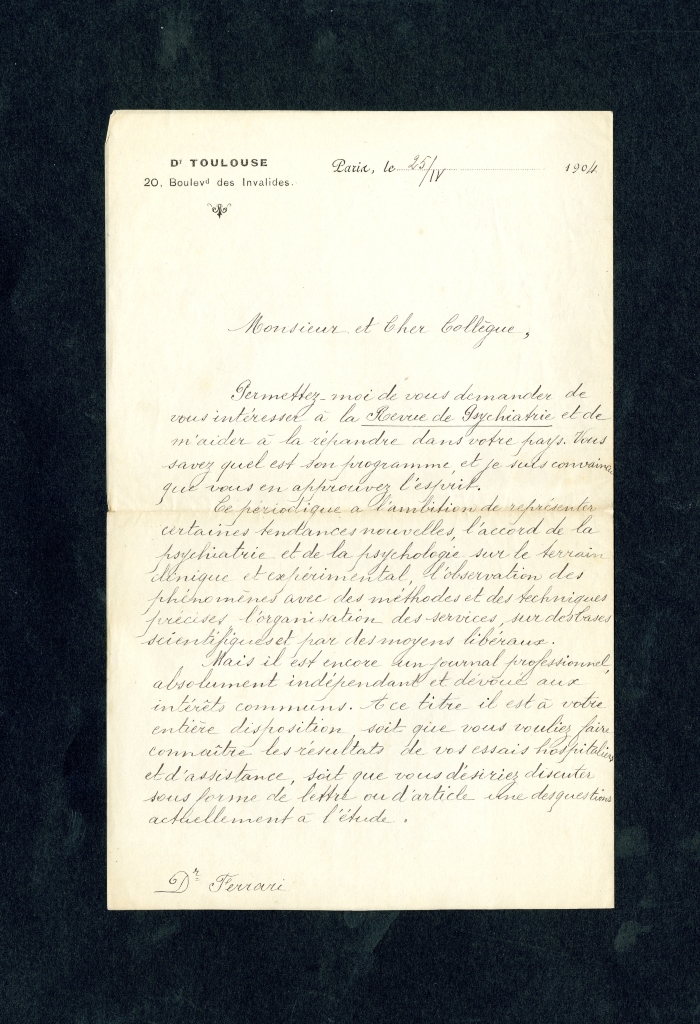 Dr TOULOUSE
20, Boulevd des Invalides.
Paris, le 25/IV 1904
Monsieur et Cher Collègue,
Permettez-moi de vous demander de
vous intéresser à la Revue de Psychiatrie et de
m'aider à la répandre dans votre pays. Vous
savez quel est son programme, et je suis convaincu
que vous en approuvez l'esprit.
Ce périodique a l'ambition de représenter
certaines tendances nouvelles, l'accord de la
psychiatrie et de la psychologie sur le terrain
clinique et expérimental, l'observation des
phénomènes avec des méthodes et des techniques
précises - l'organisation des services, sur des bases
scientifiques et par des moyens libéraux.
Mais il est encore un journal professionnel,
absolument indépendant et dévoué aux
intérêts communs. A ce titre il est à votre
entière disposition, soit que vous vouliez faire
connaître les résultats de vos essais hospitaliers
et d'assistance, soit que vous désiriez discuter
sous forme de lettre ou d'article une des questions
actuellement à l'étude.
Dr Ferrari